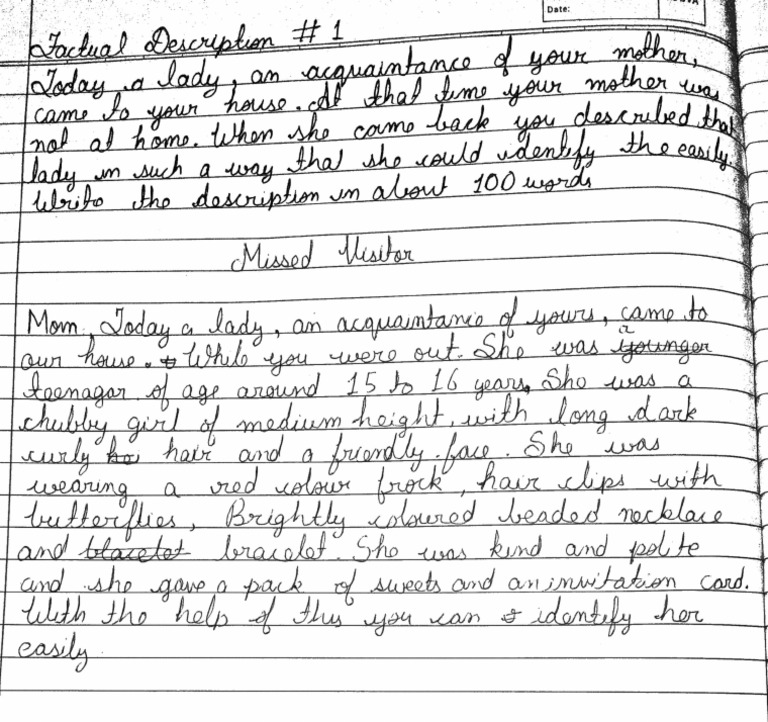 Date:
Factual Description # 1
Today a lady, an acquaintance of your mother,
came to your house. At that time your mother was
not at home. When she came back you described that
lady in such a way that she could identify the easily.
Write the description in about 100 words
Missed Visitor
Mom, Today a lady, an acquaintance of yours, came to
our house. While you were out. She was a younger
teenagar of age around 15 to 16 years, She was a
chubby girl of medium height, with long dark
curly ha hair and a friendly face. She was
wearing a red colour frock, hair clips with
butterflies, Brightly coloured beaded necklace
and blacelet bracelet. She was kind and polite
and she gave a pack of sweets and an invitation card.
With the help of this you can identify her
easily